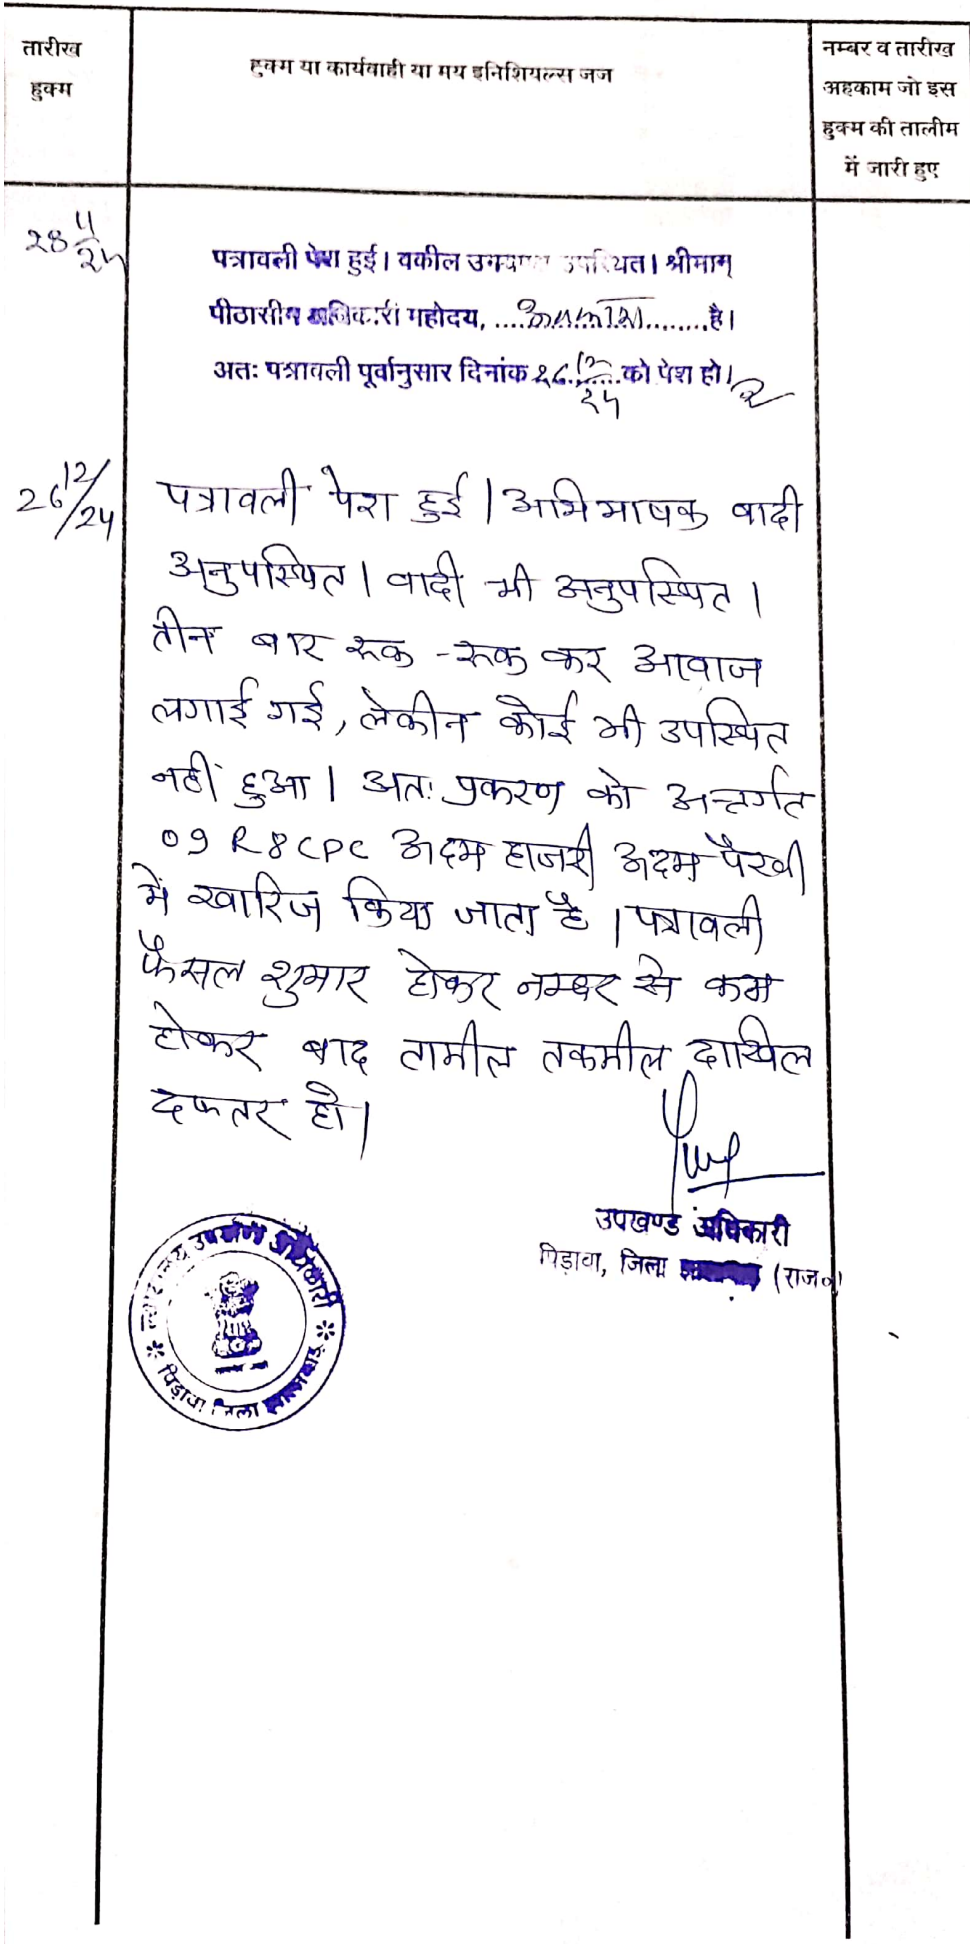 तारीख
हुक्म
हुक्म या कार्यवाही या मय इनिशियल्स जज
नम्बर व तारीख
अहकाम जो इस
हुक्म की तालीम
में जारी हुए
28 11/24
पत्रावली पेश हुई। वकील उभयपक्ष उपस्थित। श्रीमान्
पीठासीन अधिकारी महोदय, ....अवकाश........है।
अतः पत्रावली पूर्वानुसार दिनांक 26 12/24 को पेश हो।
26 12/24
पत्रावली पेश हुई। अभिभाषक वादी
अनुपस्थित। वादी भी अनुपस्थित।
तीन बार रूक-रूक कर आवाज
लगाई गई, लेकीन कोई भी उपस्थित
नहीं हुआ। अतः प्रकरण को अन्तर्गत
09 R8 CPC अदम हाजरी अदम पैरवी
में खारिज किया जाता है। पत्रावली
फैसल शुमार होकर नम्बर से कम
होकर बाद तामील तकमील दाखिल
दफ्तर हो।
उपखण्ड अधिकारी
पिड़ावा, जिला (राज०)
न्यायालय उपखण्ड अधिकारी
पिड़ावा जिला